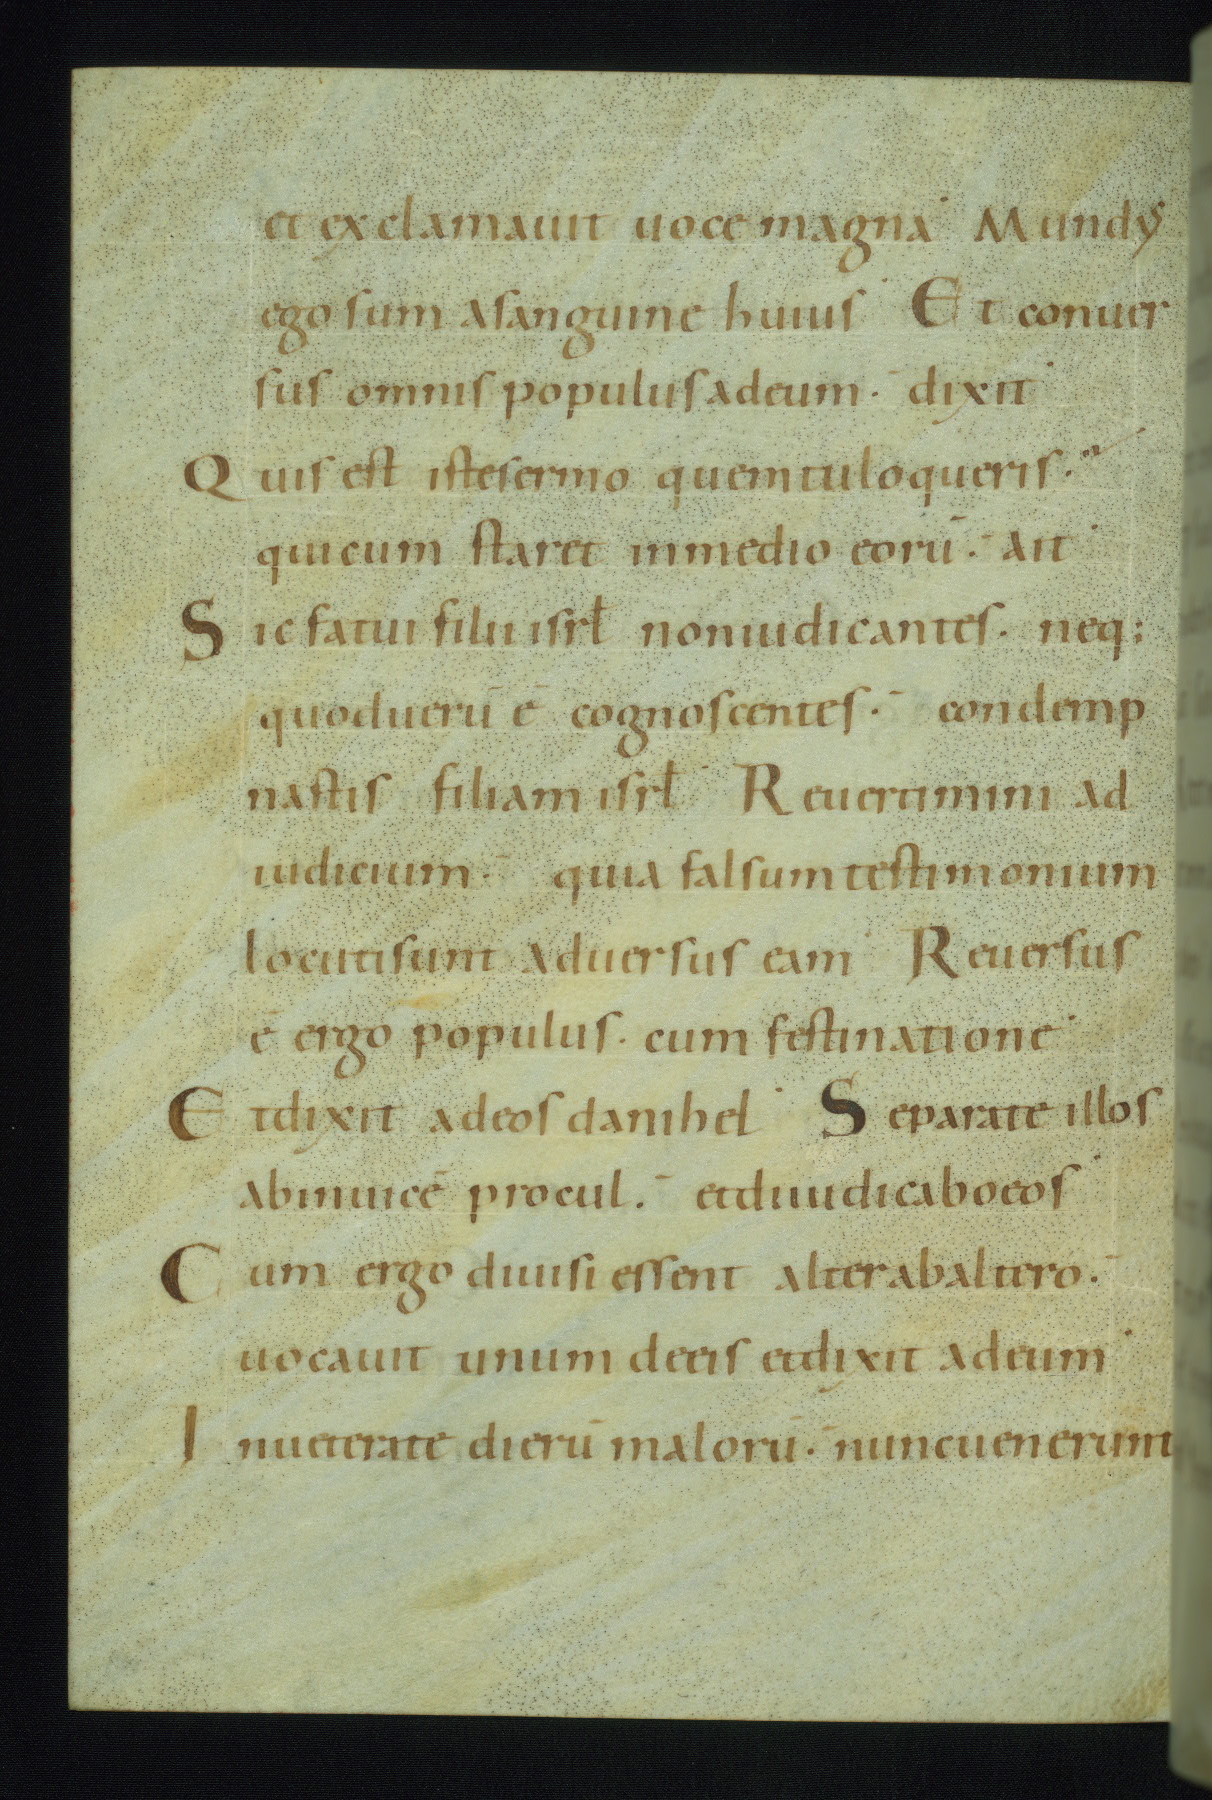 et exclamauit uoce magna· Mundus
ego sum a sanguine huius· Et conuer
sus omnis populus ad eum· dixit·
Quis est iste sermo quem tu loqueris·
qui cum staret in medio eorū· ait·
Sic fatui filii isrł non iudicantes· neq;
quod uerū ē cognoscentes· condemp
nastis filiam isrł· Reuertimini ad
iudicium· quia falsum testimonium
locuti sunt aduersus eam· Reuersus
ē ergo populus· cum festinatione·
Et dixit ad eos danihel· Separate illos
ab inuicē procul· et diiudicabo eos·
Cum ergo diuisi essent alter ab altero·
uocauit unum de eis et dixit ad eum·
Inueterate dierū malorū· nunc uenerunt